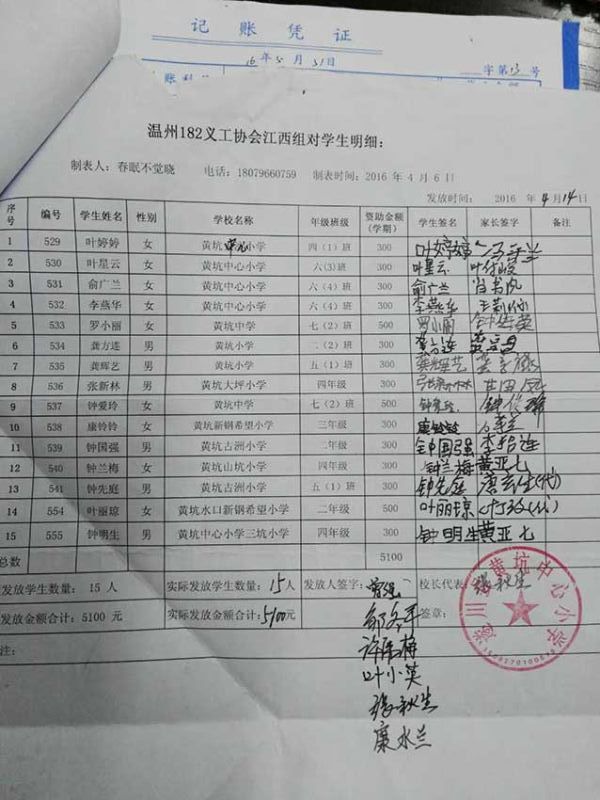 记账凭证
16年5月31日 字第13号
温州182义工协会江西组对学生明细:
制表人: 春眠不觉晓 电话: 18079660759 制表时间: 2016 年 4 月 6 日
发放时间: 2016 年4月14日
序号 编号 学生姓名 性别 学校名称 年级班级 资助金额(学期) 学生签名 家长签字 备注
1 529 叶婷婷 女 黄坑小学 四(1)班 300 叶婷婷
2 530 叶星云 女 黄坑中心小学 六(3)班 300 叶星云
3 531 俞广兰 女 黄坑中心小学 六(4)班 300 俞广兰
4 532 李燕华 女 黄坑中心小学 六(4)班 300 李燕华
5 533 罗小丽 女 黄坑中学 七(2)班 500
6 534 龚方连 男 黄坑小学 二(2)班 300
7 535 龚辉艺 男 黄坑小学 五(1)班 300 龚辉艺
8 536 张新林 男 黄坑大坪小学 四年级 300
9 537 钟爱玲 女 黄坑中学 七(2)班 500
10 538 康铃铃 女 黄坑新钢希望小学 三年级 300
11 539 钟国强 男 黄坑古洲小学 二年级 300 钟国强
12 540 钟兰梅 女 黄坑山坑小学 四年级 300 钟兰梅 黄亚七
13 541 钟先庭 男 黄坑古洲小学 五(1)班 300 钟先庭
14 554 叶丽琼 女 黄坑水口新钢希望小学 二年级 500 叶丽琼
15 555 钟明生 男 黄坑中心小学三坑小学 四年级 300 钟明生 黄亚七
总数 5100
发放学生数量: 15 人 实际发放学生数量: 15人 发放人签字: 校长代表: 张秋生
发放金额合计: 5100 元 实际发放金额合计: 5100元 签章:
注:
叶小英
张秋生
康水兰
遂川县黄坑中心小学